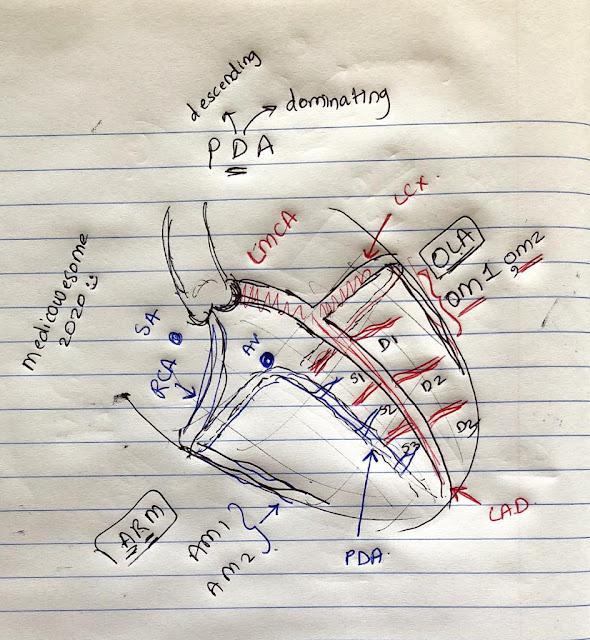 descending
dominating
PDA
LCX
LMCA
OLA
OM1, OM2
medicowesome
2020
SA
RCA
AV
D1
S1
D2
S2
D2
S3
LAD
ARM
AM1
AM2
PDA